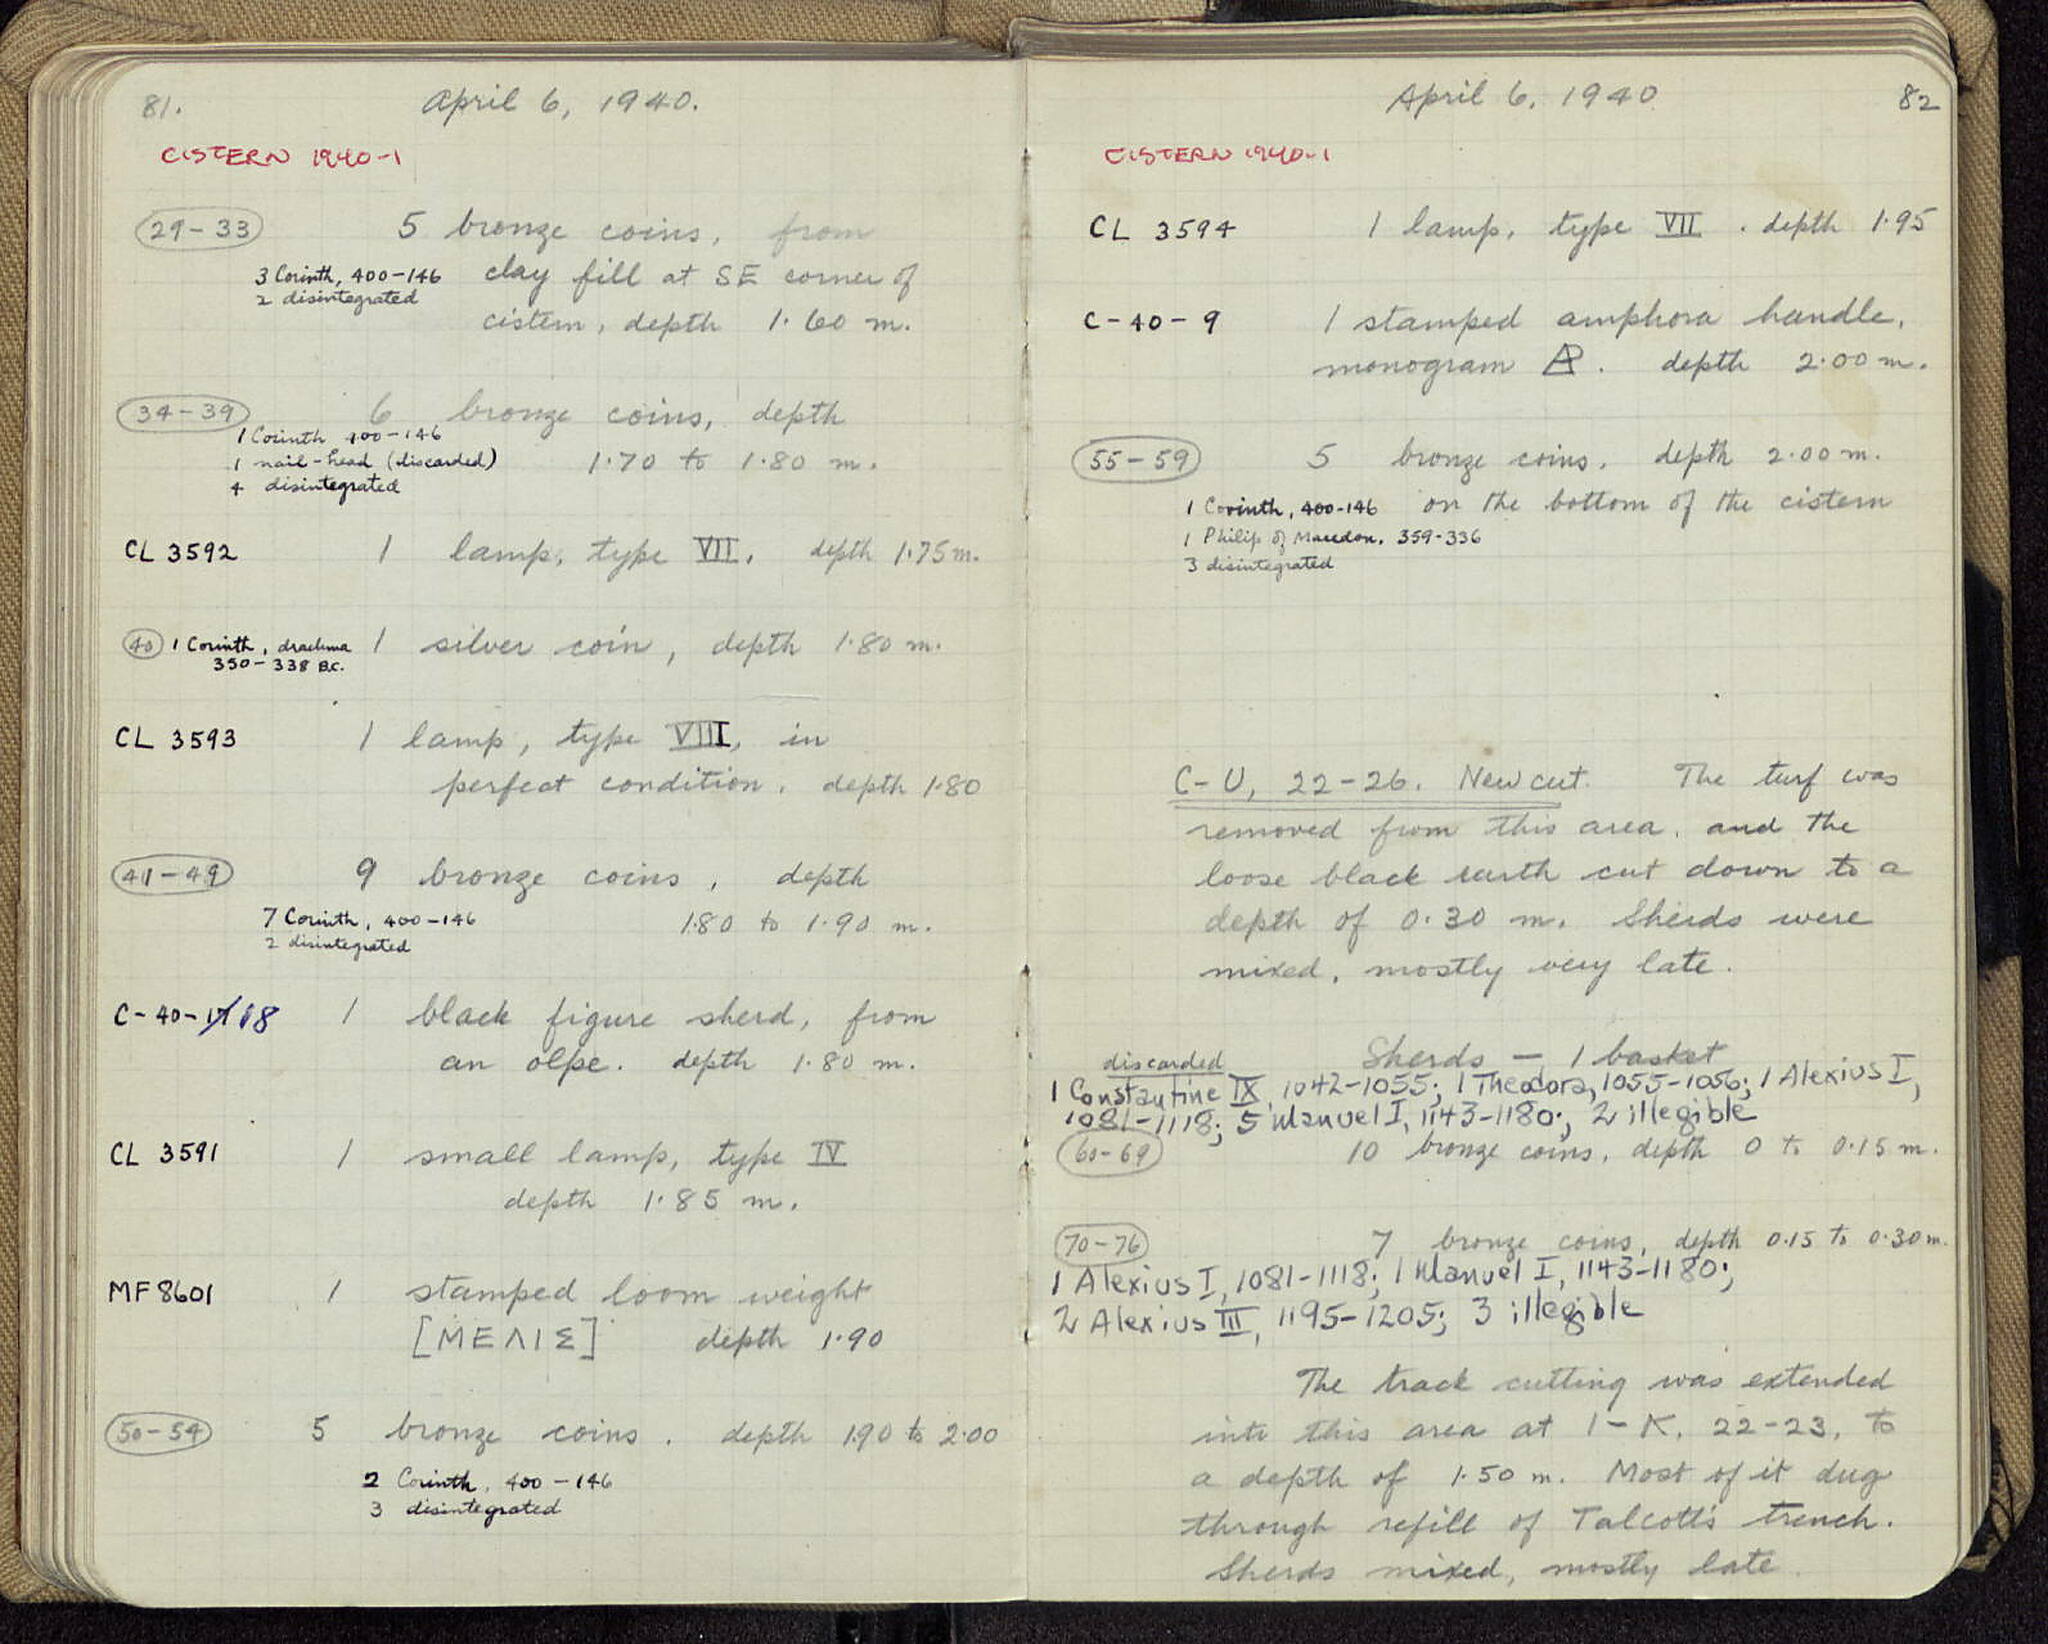 81. April 6, 1940.
CISTERN 1940-1
29-33 5 bronze coins, from
3 Corinth, 400-146 clay fill at SE corner of
2 disintegrated
cistern, depth 1.60 m.
34-39 6 bronze coins, depth
1 Corinth 400-146
1 nail-head (discarded) 1.70 to 1.80 m.
4 disintegrated
CL 3592 1 lamp, type VII, depth 1.75 m.
40 1 Corinth, drachma 1 silver coin, depth 1.80 m.
350-338 B.C.
CL 3593 1 lamp, type VIII, in
perfect condition. depth 1.80
41-49 9 bronze coins, depth
7 Corinth, 400-146 1.80 to 1.90 m.
2 disintegrated
C-40-18 1 black figure sherd, from
an olpe. depth 1.80 m.
CL 3591 1 small lamp, type IV
depth 1.85 m.
MF 8601 1 stamped loom weight
[ΜΕΛΙΣ] depth 1.90
50-54 5 bronze coins. depth 1.90 to 2.00
2 Corinth, 400-146
3 disintegrated
April 6, 1940 82
CISTERN 1940-1
CL 3594 1 lamp, type VII. depth 1.95
C-40-9 1 stamped amphora handle,
monogram . depth 2.00 m.
55-59 5 bronze coins. depth 2.00 m.
1 Corinth, 400-146 on the bottom of the cistern
1 Philip of Macedon, 359-336
3 disintegrated
C-U, 22-26. New cut. The turf was
removed from this area, and the
loose black earth cut down to a
depth of 0.30 m. Sherds were
mixed, mostly very late.
discarded Sherds — 1 basket
1 Constantine IX, 1042-1055; 1 Theodora, 1055-1056; 1 Alexius I,
1081-1118; 5 Manuel I, 1143-1180; 2 illegible
60-69 10 bronze coins, depth 0 to 0.15 m.
70-76 7 bronze coins, depth 0.15 to 0.30 m.
1 Alexius I, 1081-1118; 1 Manuel I, 1143-1180;
2 Alexius III, 1195-1205; 3 illegible
The track cutting was extended
into this area at I-K, 22-23, to
a depth of 1.50 m. Most of it dug
through refill of Talcott's trench.
Sherds mixed, mostly late.